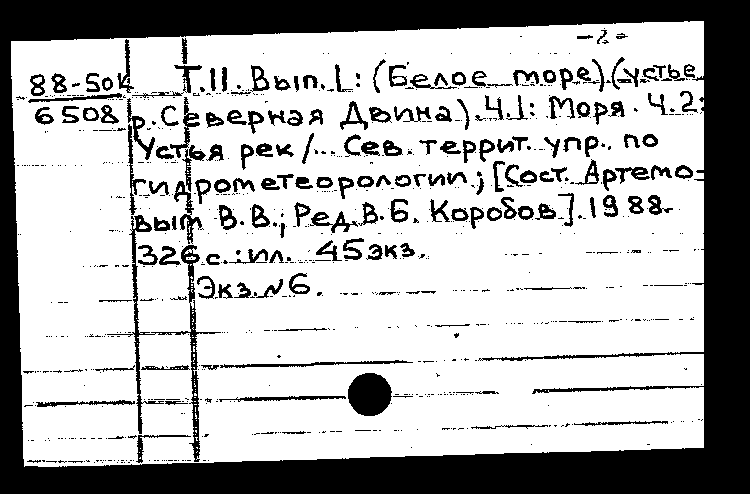 -2-
88-50к Т.II. Вып.1: (Белое море).(устье
6508 р. Северная Двина). Ч.1: Моря. Ч.2:
Устья рек /... Сев. террит. упр. по
гидрометеорологии; [Сост. Артемо-
вым В.В.; Ред. В.Б. Коробов]. 1988.
326 с.: ил. 45 экз.
Экз. №6.